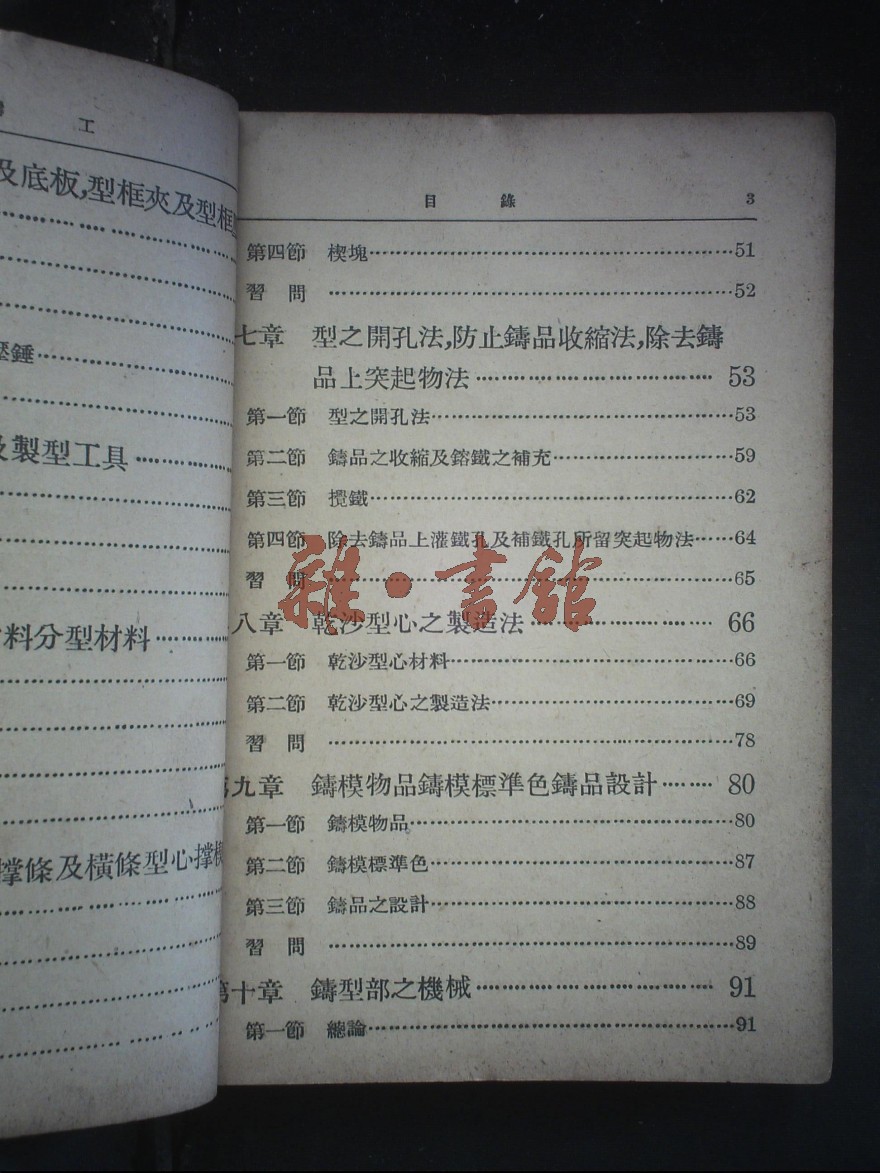 工
及底板,型框夾及型框
壓錘
及製型工具
料分型材料
撐條及橫條型心撐
目錄 3
第四節 楔塊 51
習問 52
七章 型之開孔法,防止鑄品收縮法,除去鑄
品上突起物法 53
第一節 型之開孔法 53
第二節 鑄品之收縮及鎔鐵之補充 59
第三節 攪鐵 62
第四節 除去鑄品上灌鐵孔及補鐵孔所留突起物法 64
習問 65
八章 乾沙型心之製造法 66
第一節 乾沙型心材料 66
第二節 乾沙型心之製造法 69
習問 78
第九章 鑄模物品鑄模標準色鑄品設計 80
第一節 鑄模物品 80
第二節 鑄模標準色 87
第三節 鑄品之設計 88
習問 89
第十章 鑄型部之機械 91
第一節 總論 91
雜·書館